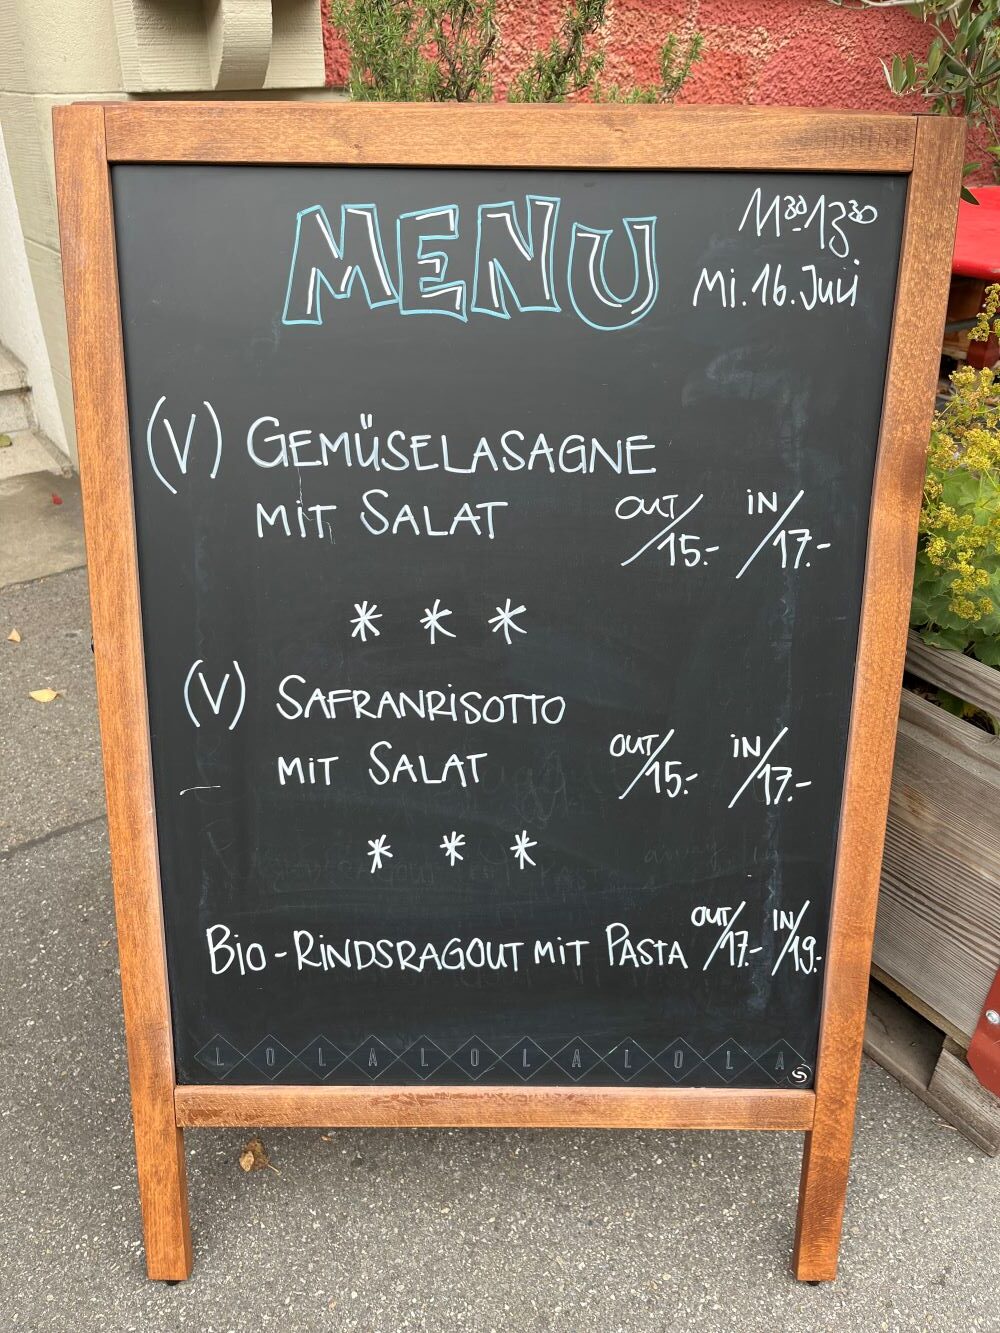 MENU
11³⁰-13³⁰
Mi. 16. Juli
(V) GEMÜSELASAGNE
MIT SALAT OUT/15.- IN/17.-
* * *
(V) SAFRANRISOTTO
MIT SALAT OUT/15.- IN/17.-
* * *
BIO-RINDSRAGOUT MIT PASTA OUT/17.- IN/19.-
LOLALOLALOLA